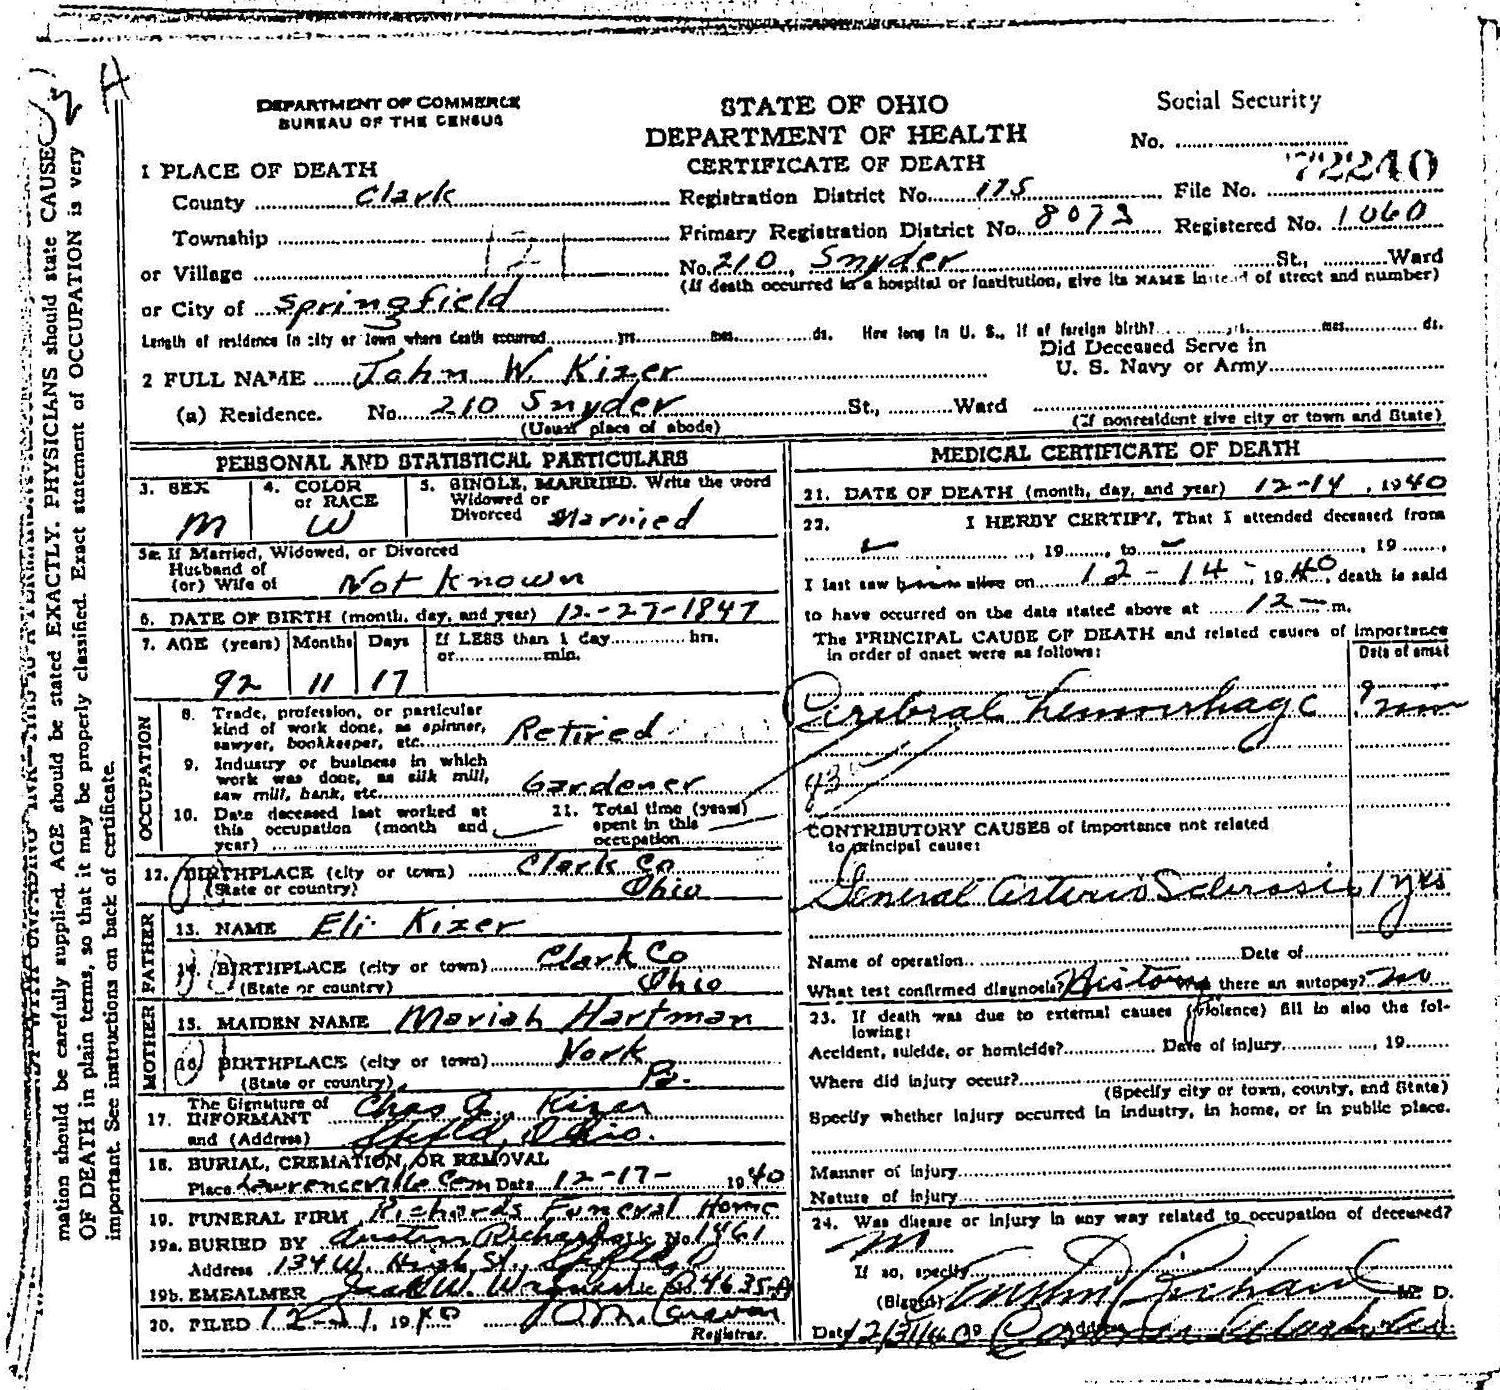 DEPARTMENT OF COMMERCE
BUREAU OF THE CENSUS
STATE OF OHIO
DEPARTMENT OF HEALTH
CERTIFICATE OF DEATH
Social Security
No.
1 PLACE OF DEATH
County Clark
Registration District No. 175 File No. 72240
Township
Primary Registration District No. 8073 Registered No. 1060
or Village
No. 210, Snyder St., Ward
(If death occurred in a hospital or institution, give its NAME instead of street and number)
or City of Springfield
Length of residence in city or town where death occurred yrs. mos. ds. How long in U. S., if of foreign birth? yrs. mos. ds.
Did Deceased Serve in
U. S. Navy or Army
2 FULL NAME John W. Kizer
(a) Residence. No. 210 Snyder St., Ward
(Usual place of abode)
(If nonresident give city or town and State)
PERSONAL AND STATISTICAL PARTICULARS
3. SEX M
4. COLOR or RACE W
5. SINGLE, MARRIED. Write the word
Widowed or
Divorced Married
5a. If Married, Widowed, or Divorced
Husband of
(or) Wife of Not Known
6. DATE OF BIRTH (month, day, and year) 12-27-1847
7. AGE (years) Months Days If LESS than 1 day hrs.
or min.
92 11 17
OCCUPATION
8. Trade, profession, or particular
kind of work done, as spinner,
sawyer, bookkeeper, etc. Retired
9. Industry or business in which
work was done, as silk mill,
saw mill, bank, etc. Gardener
10. Date deceased last worked at
this occupation (month and
year)
11. Total time (years)
spent in this
occupation
12. BIRTHPLACE (city or town) Clark Co
(State or country) Ohio
FATHER
13. NAME Eli Kizer
14. BIRTHPLACE (city or town) Clark Co
(State or country) Ohio
MOTHER
15. MAIDEN NAME Mariah Hartman
16. BIRTHPLACE (city or town) York
(State or country) Pa.
17. The Signature of
INFORMANT Chas Kizer
and (Address) Spfld, Ohio.
18. BURIAL, CREMATION, OR REMOVAL
Place Lawrenceville Cem Date 12-17- 1940
19. FUNERAL FIRM Richards Funeral Home
19a. BURIED BY Austin Richards Lic No. 1461
Address 134 W. High St., Spfld, O
19b. EMBALMER Jack W. Lic No. 4635-A
20. FILED 12-21, 1940
Registrar.
MEDICAL CERTIFICATE OF DEATH
21. DATE OF DEATH (month, day, and year) 12-14, 1940
22. I HERBY CERTIFY, That I attended deceased from
, 19 , to , 19 ,
I last saw him alive on 12-14-, 1940, death is said
to have occurred on the date stated above at 12- m.
The PRINCIPAL CAUSE OF DEATH and related causes of importance
in order of onset were as follows:
Date of onset
Cerebral hemorrhage
CONTRIBUTORY CAUSES of importance not related
to principal cause:
General arterio Sclerosis 1 yrs
Name of operation Date of
What test confirmed diagnosis? History Was there an autopsy? no
23. If death was due to external causes (violence) fill in also the fol-
lowing:
Accident, suicide, or homicide? Date of injury , 19
Where did injury occur?
(Specify city or town, county, and State)
Specify whether injury occurred in industry, in home, or in public place.
Manner of injury
Nature of injury
24. Was disease or injury in any way related to occupation of deceased?
no
If so, specify
(Signed) Austin Richards M. D.
Address Coroner Clark Co
mation should be carefully supplied. AGE should be stated EXACTLY. PHYSICIANS should state CAUSE
OF DEATH in plain terms, so that it may be properly classified. Exact statement of OCCUPATION is very
important. See instructions on back of certificate.